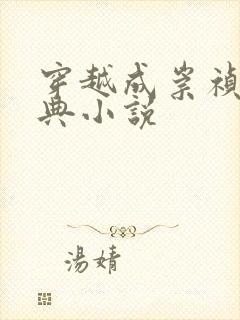 穿越成崇禎
典小說
湯婧